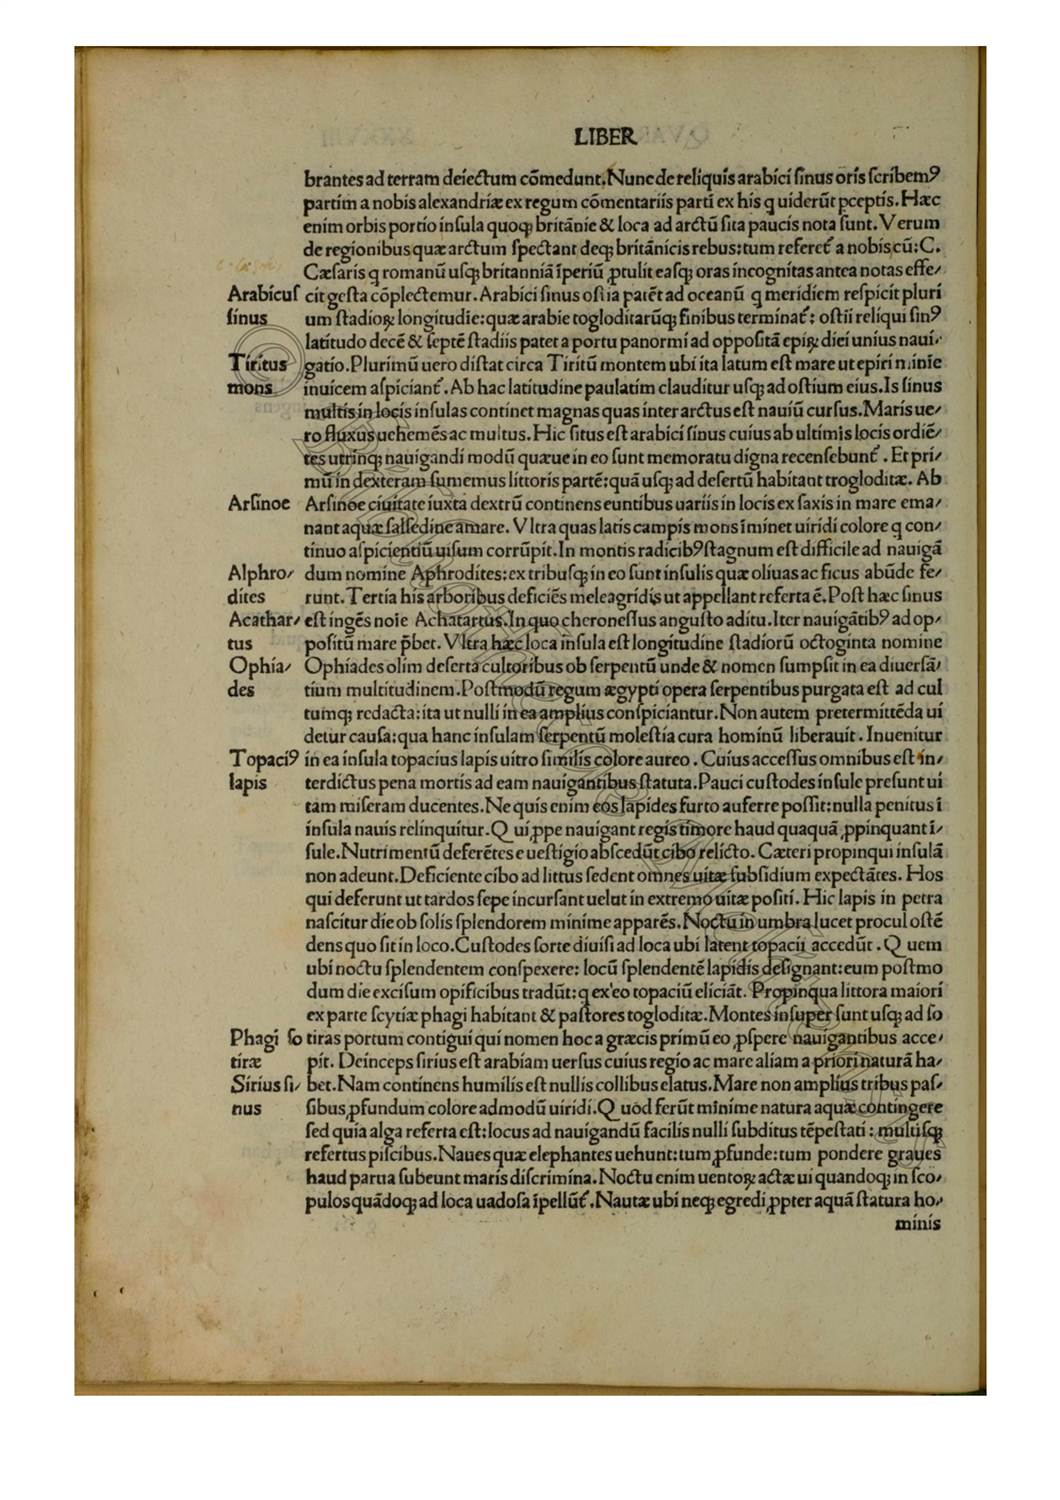 LIBER
brantes ad terram deiectum cōmedunt. Nunc de reliquis arabici ſinus oris ſcribemꝰ
partim a nobis alexandriæ ex regum cōmentariis parti ex his q uiderūt ꝑceptis. Hæc
enim orbis portio inſula quoqꝫ britānie & loca ad arctū ſita paucis nota ſunt. Verum
de regionibus quæ arctum ſpectant deqꝫ britānicis rebus: tum referet᷑ a nobis cū: C.
Cæſaris q romanū uſqꝫ britanniā īperiū ꝓtulit eaſqꝫ oras incognitas antea notas effe⸗
Arabicuſ cit geſta cōplectemur. Arabici ſinus oſtia patēt ad oceanū q meridiem reſpicit pluri
ſinus um ſtadioꝝ longitudīe: quæ arabie togloditarūqꝫ finibus terminat᷑: oſtii reliqui ſinꝰ
latitudo decē & ſeptē ſtadiis patet a portu panormi ad oppoſitā epiꝝ diei unius naui⸗
Tiritus gatio. Plurimū uero diſtat circa Tiritū montem ubi ita latum eſt mare ut epiri minie
mons inuicem aſpiciant᷑. Ab hac latitudine paulatim clauditur uſqꝫ ad oſtium eius. Is ſinus
multis in locis inſulas continet magnas quas inter arctus eſt nauiū curſus. Maris ue⸗
ro fluxus uehemēs ac multus. Hic ſitus eſt arabici ſinus cuius ab ultimis locis ordiē⸗
tes utrinqꝫ nauigandi modū quæue in eo ſunt memoratu digna recenſebunt᷑. Et pri⸗
mū in dexteram ſumemus littoris partē: quā uſqꝫ ad deſertū habitant trogloditæ. Ab
Arſinoe Arſinoe ciuitate iuxta dextrū continens euntibus uariis in locis ex ſaxis in mare ema⸗
nant aquæ ſalſedine amare. Vltra quas latis campis mons īminet uiridi colore q con⸗
tinuo aſpicientiū uiſum corrūpit. In montis radicibꝰ ſtagnum eſt difficile ad nauigā
Alphro⸗ dum nomine Aphrodites: ex tribuſqꝫ in eo ſunt inſulis quæ oliuas ac ficus abūde fe⸗
dites runt. Tertia his arboribus deficiēs meleagridis ut appellant referta ē. Poſt hæc ſinus
Acathar⸗ eſt ingēs noīe Achatartus. In quo cheroneſſus anguſto aditu. Iter nauigātibꝰ ad op⸗
tus poſitū mare p̄bet. Vltra hæc loca inſula eſt longitudine ſtadiorū octoginta nomine
Ophia⸗ Ophiades olim deſerta cultoribus ob ſerpentū unde & nomen ſumpſit in ea diuerſā⸗
des tium multitudinem. Poſtmodū regum ægypti opera ſerpentibus purgata eſt ad cul
tumqꝫ redacta: ita ut nulli in ea amplius conſpiciantur. Non autem pretermittēda ui
detur cauſa: qua hanc inſulam ſerpentū moleſtia cura hominū liberauit. Inuenitur
Topaciꝰ in ea inſula topacius lapis uitro ſimilis colore aureo. Cuius acceſſus omnibus eſt in⸗
lapis terdictus pena mortis ad eam nauigantibus ſtatuta. Pauci cuſtodes inſule preſunt ui
tam miſeram ducentes. Ne quis enim eos lapides furto auferre poſſit: nulla penitus ī
inſula nauis relinquitur. Q ui ꝓpe nauigant regis timore haud quaquā ꝓpinquant ī⸗
ſule. Nutrimentū deferētes e ueſtigio abſcedūt cibo relicto. Cæteri propinqui inſulā
non adeunt. Deficiente cibo ad littus ſedent omnes uitæ ſubſidium expectātes. Hos
qui deferunt ut tardos ſepe incurſant uelut in extremo uitæ poſiti. Hic lapis in petra
naſcitur die ob ſolis ſplendorem minime apparēs. Noctu in umbra lucet procul oſtē
dens quo ſit in loco. Cuſtodes ſorte diuiſi ad loca ubi latent topacii accedūt. Q uem
ubi noctu ſplendentem conſpexere: locū ſplendentē lapidis deſignant: eum poſtmo
dum die exciſum opificibus tradūt: q ex eo topaciū eliciāt. Propinqua littora maiori
ex parte ſcytiæ phagi habitant & paſtores togloditæ. Montes inſuper ſunt uſqꝫ ad ſo
Phagi ſo tiras portum contigui qui nomen hoc a græcis primū eo ꝓſpere nauigantibus acce⸗
tiræ pit. Deinceps ſirius eſt arabiam uerſus cuius regio ac mare aliam a priori naturā ha⸗
Sirius ſi⸗ bet. Nam continens humilis eſt nullis collibus elatus. Mare non amplius tribus paſ⸗
nus ſibus ꝓfundum colore admodū uiridi. Q uod ferūt minime natura aquæ contingere
ſed quia alga referta eſt: locus ad nauigandū facilis nulli ſubditus tēpeſtati: multiſqꝫ
refertus piſcibus. Naues quæ elephantes uehunt: tum ꝓfunde: tum pondere graues
haud parua ſubeunt maris diſcrimina. Noctu enim uentoꝝ actæ ui quandoqꝫ in ſco⸗
pulos quādoqꝫ ad loca uadoſa īpellūt᷑. Nautæ ubi neqꝫ egredi ꝓpter aquā ſtatura ho⸗
minis